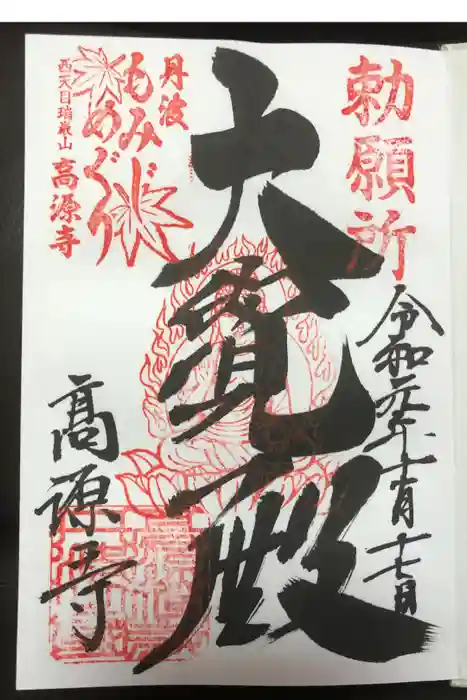 勅願所
令和元年十一月十七日
大覺殿
丹波
もみじ
めぐり
西天目瑞巌山
高源寺
高源寺